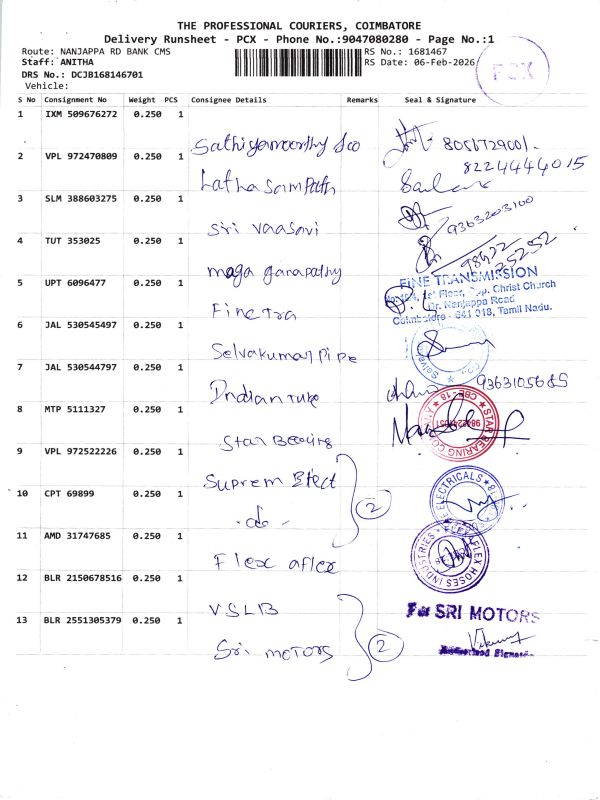 THE PROFESSIONAL COURIERS, COIMBATORE
Delivery Runsheet - PCX - Phone No.:9047080280 - Page No.:1
Route: NANJAPPA RD BANK CMS RS No.: 1681467
Staff: ANITHA RS Date: 06-Feb-2026
DRS No.: DCJB168146701
Vehicle:
PCX
S No Consignment No Weight PCS Consignee Details Remarks Seal & Signature
1 IXM 509676272 0.250 1
Sathiyamoorthy &co 8056729001.
2 VPL 972470809 0.250 1 8224444015
Latha Sampath
3 SLM 388603275 0.250 1 9363203100
Sri Vaasavi
4 TUT 353025 0.250 1
maga ganapathy
5 UPT 6096477 0.250 1 FINE TRANSMISSION
1st Floor, Opp. Christ Church
Dr. Nanjappa Road
Finetra Coimbatore - 641 018, Tamil Nadu.
6 JAL 530545497 0.250 1
Selvakumar Pipe
7 JAL 530544797 0.250 1 9363105685
Indian Tube
8 MTP 5111327 0.250 1 STAR BEARING COMPANY CBE-18
Star Bearing
9 VPL 972522226 0.250 1
Suprem Elect
10 CPT 69899 0.250 1 2 ELECTRICALS
-do-
11 AMD 31747685 0.250 1
Flex aflex FLEX HOSES INDUSTRIES
12 BLR 2150678516 0.250 1
VSLB For SRI MOTORS
13 BLR 2551305379 0.250 1 2
Sri motors Authorised Signatory